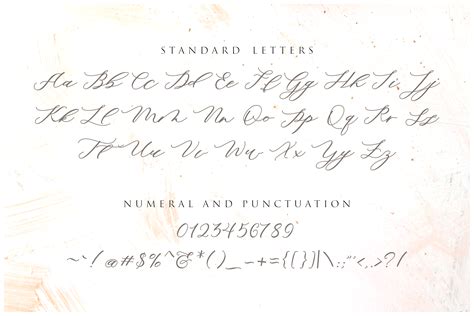 STANDARD LETTERS
Aa Bb Cc Dd Ee Ff Gg Hh Ii Jj
Kk Ll Mm Nn Oo Pp Qq Rr Ss
Tt Uu Vv Ww Xx Yy Zz
NUMERAL AND PUNCTUATION
0123456789
~`!@#$%^&*()_-+={[}]|\:;"'<,.>?/